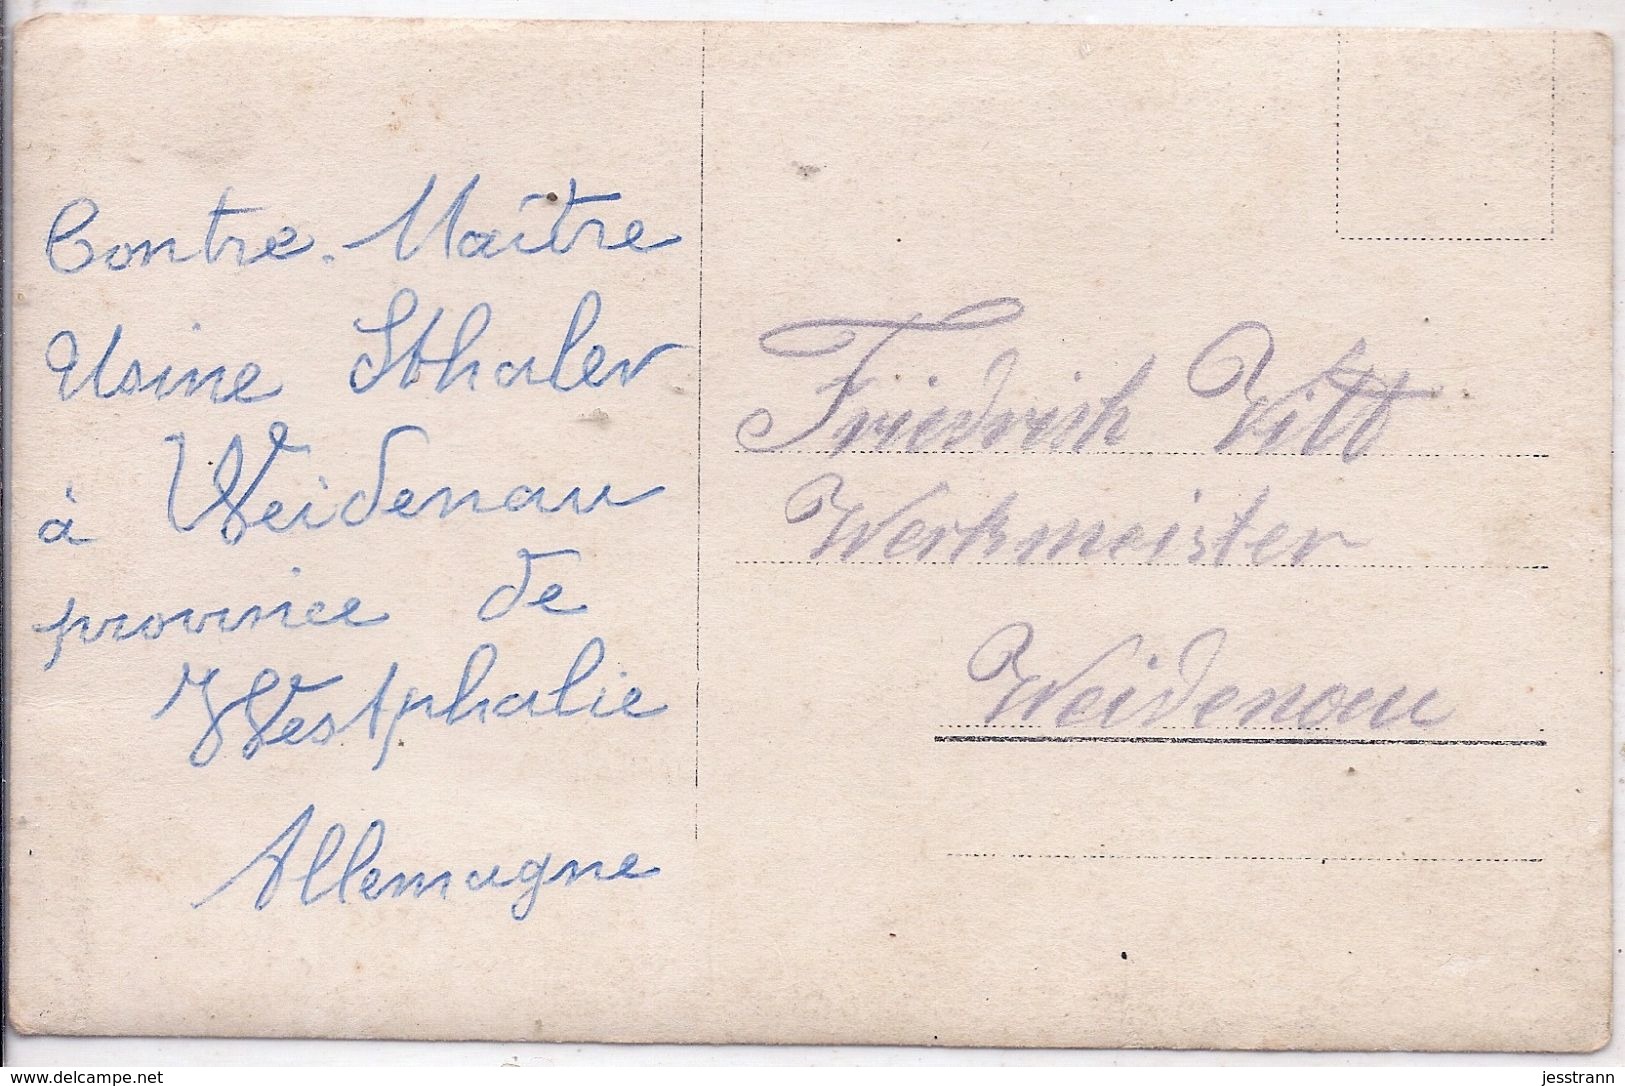 Contre-Maître
Usine Sthaler
à Weidenau
province de
Westphalie
Allemagne
Friedrich Vitt
Werkmeister
Weidenau
www.delcampe.net
jesstrann